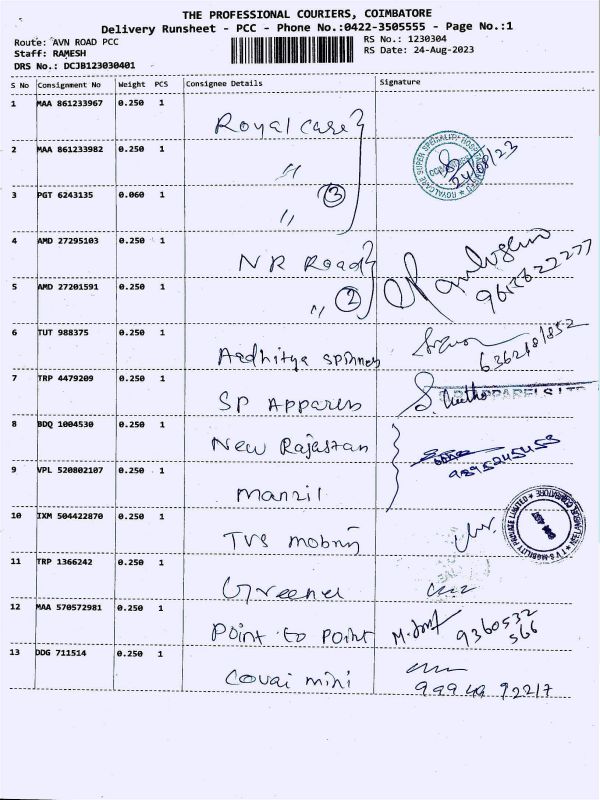 THE PROFESSIONAL COURIERS, COIMBATORE
Delivery Runsheet - PCC - Phone No.:0422-3505555 - Page No.:1
Route: AVN ROAD PCC
RS No.: 1230304
Staff: RAMESH
RS Date: 24-Aug-2023
DRS No.: DCJB123030401
S No Consignment No Weight PCS Consignee Details Signature
1 MAA 861233967 0.250 1 Royal care
2 MAA 861233982 0.250 1 〃 24/08/23
3 PGT 6243135 0.060 1 〃 3
4 AMD 27295103 0.250 1 NR Road
5 AMD 27201591 0.250 1 〃 2
6 TUT 988375 0.250 1 Aadhitya spinners
7 TRP 4479209 0.250 1 SP Apparels
8 BDQ 1004530 0.250 1 New Rajastan
9 VPL 520802107 0.250 1 Manzil 9895245453
10 IXM 504422870 0.250 1 TVS mobility
11 TRP 1366242 0.250 1
12 MAA 570572981 0.250 1 Point to Point 9360532
566
13 DDG 711514 0.250 1 Covai mini